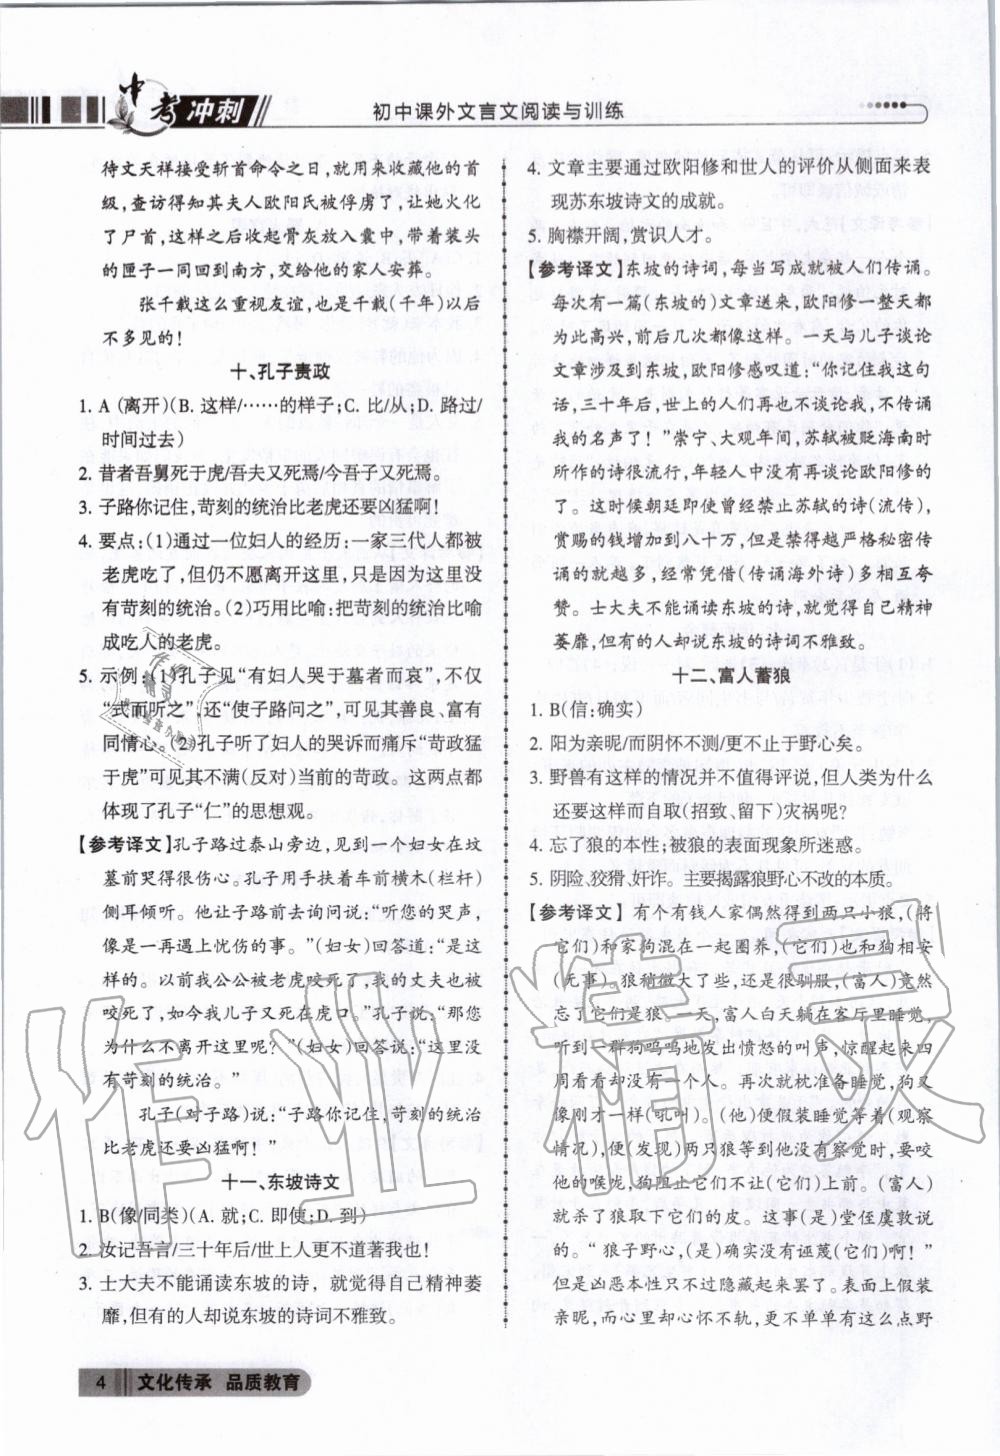 中考冲刺
初中课外文言文阅读与训练
待文天祥接受斩首命令之日，就用来收藏他的首
级，查访得知其夫人欧阳氏被俘虏了，让她火化
了尸首，这样之后收起骨灰放入囊中，带着装头
的匣子一同回到南方，交给他的家人安葬。
张千载这么重视友谊，也是千载(千年)以后
不多见的！
十、孔子责政
1. A (离开)(B. 这样/……的样子;C. 比/从;D. 路过/
时间过去)
2. 昔者吾舅死于虎/吾夫又死焉/今吾子又死焉。
3. 子路你记住,苛刻的统治比老虎还要凶猛啊!
4. 要点:(1)通过一位妇人的经历:一家三代人都被
老虎吃了,但仍不愿离开这里,只是因为这里没
有苛刻的统治。(2)巧用比喻:把苛刻的统治比喻
成吃人的老虎。
5. 示例:(1)孔子见“有妇人哭于墓者而哀”,不仅
“式而听之”,还“使子路问之”,可见其善良、富有
同情心。(2)孔子听了妇人的哭诉而痛斥“苛政猛
于虎”可见其不满(反对)当前的苛政。这两点都
体现了孔子“仁”的思想观。
【参考译文】孔子路过泰山旁边,见到一个妇女在坟
墓前哭得很伤心。孔子用手扶着车前横木(栏杆)
侧耳倾听。他让子路前去询问说:“听您的哭声,
像是一再遇上忧伤的事。”(妇女)回答道:“是这
样的。以前我公公被老虎咬死了,我的丈夫也被
咬死了,如今我儿子又死在虎口。”孔子说:“那您
为什么不离开这里呢？”(妇女)回答说:“这里没
有苛刻的统治。”
孔子(对子路)说:“子路你记住,苛刻的统治
比老虎还要凶猛啊！”
十一、东坡诗文
1. B(像/同类)(A. 就;C. 即使;D. 到)
2. 汝记吾言/三十年后/世上人更不道著我也!
3. 士大夫不能诵读东坡的诗，就觉得自己精神萎
靡,但有的人却说东坡的诗词不雅致。
4. 文章主要通过欧阳修和世人的评价从侧面来表
现苏东坡诗文的成就。
5. 胸襟开阔,赏识人才。
【参考译文】东坡的诗词,每当写成就被人们传诵。
每次有一篇(东坡的)文章送来,欧阳修一整天都
为此高兴，前后几次都像这样。一天与儿子谈论
文章涉及到东坡,欧阳修感叹道:“你记住我这句
话,三十年后,世上的人们再也不谈论我,不传诵
我的名声了！”崇宁、大观年间，苏轼被贬海南时
所作的诗很流行,年轻人中没有再谈论欧阳修的
了。这时候朝廷即使曾经禁止苏轼的诗(流传),
赏赐的钱增加到八十万,但是禁得越严格秘密传
诵的就越多,经常凭借(传诵海外诗)多相互夸
赞。士大夫不能诵读东坡的诗,就觉得自己精神
萎靡,但有的人却说东坡的诗词不雅致。
十二、富人蓄狼
1. B(信:确实)
2. 阳为亲昵/而阴怀不测/更不止于野心矣。
3. 野兽有这样的情况并不值得评说,但人类为什么
还要这样而自取(招致、留下)灾祸呢?
4. 忘了狼的本性;被狼的表面现象所迷惑。
5. 阴险、狡猾、奸诈。主要揭露狼野心不改的本质。
【参考译文】有个有钱人家偶然得到两只小狼,(将
它们)和家狗混在一起圈养,(它们)也和狗相安
(无事)。狼稍微大了些,还是很驯服,(富人)竟然
忘了它们是狼。一天,富人白天躺在客厅里睡觉,
听到一群狗呜呜地发出愤怒的叫声,惊醒起来四
周看看却没有一个人。再次就枕准备睡觉,狗又
像刚才一样(吼叫)。(他)便假装睡觉等着(观察
情况),便(发现)两只狼等到他没有察觉,要咬
他的喉咙,狗阻止它们不让(它们)上前。(富人)
就杀了狼取下它们的皮。这事(是)堂侄虞敦说
的。“狼子野心,(是)确实没有诬蔑(它们)啊！”
但是凶恶本性只不过隐藏起来罢了。表面上假装
亲昵,而心里却心怀不轨,更不单单有这么点野
4
文化传承 品质教育
作业精灵